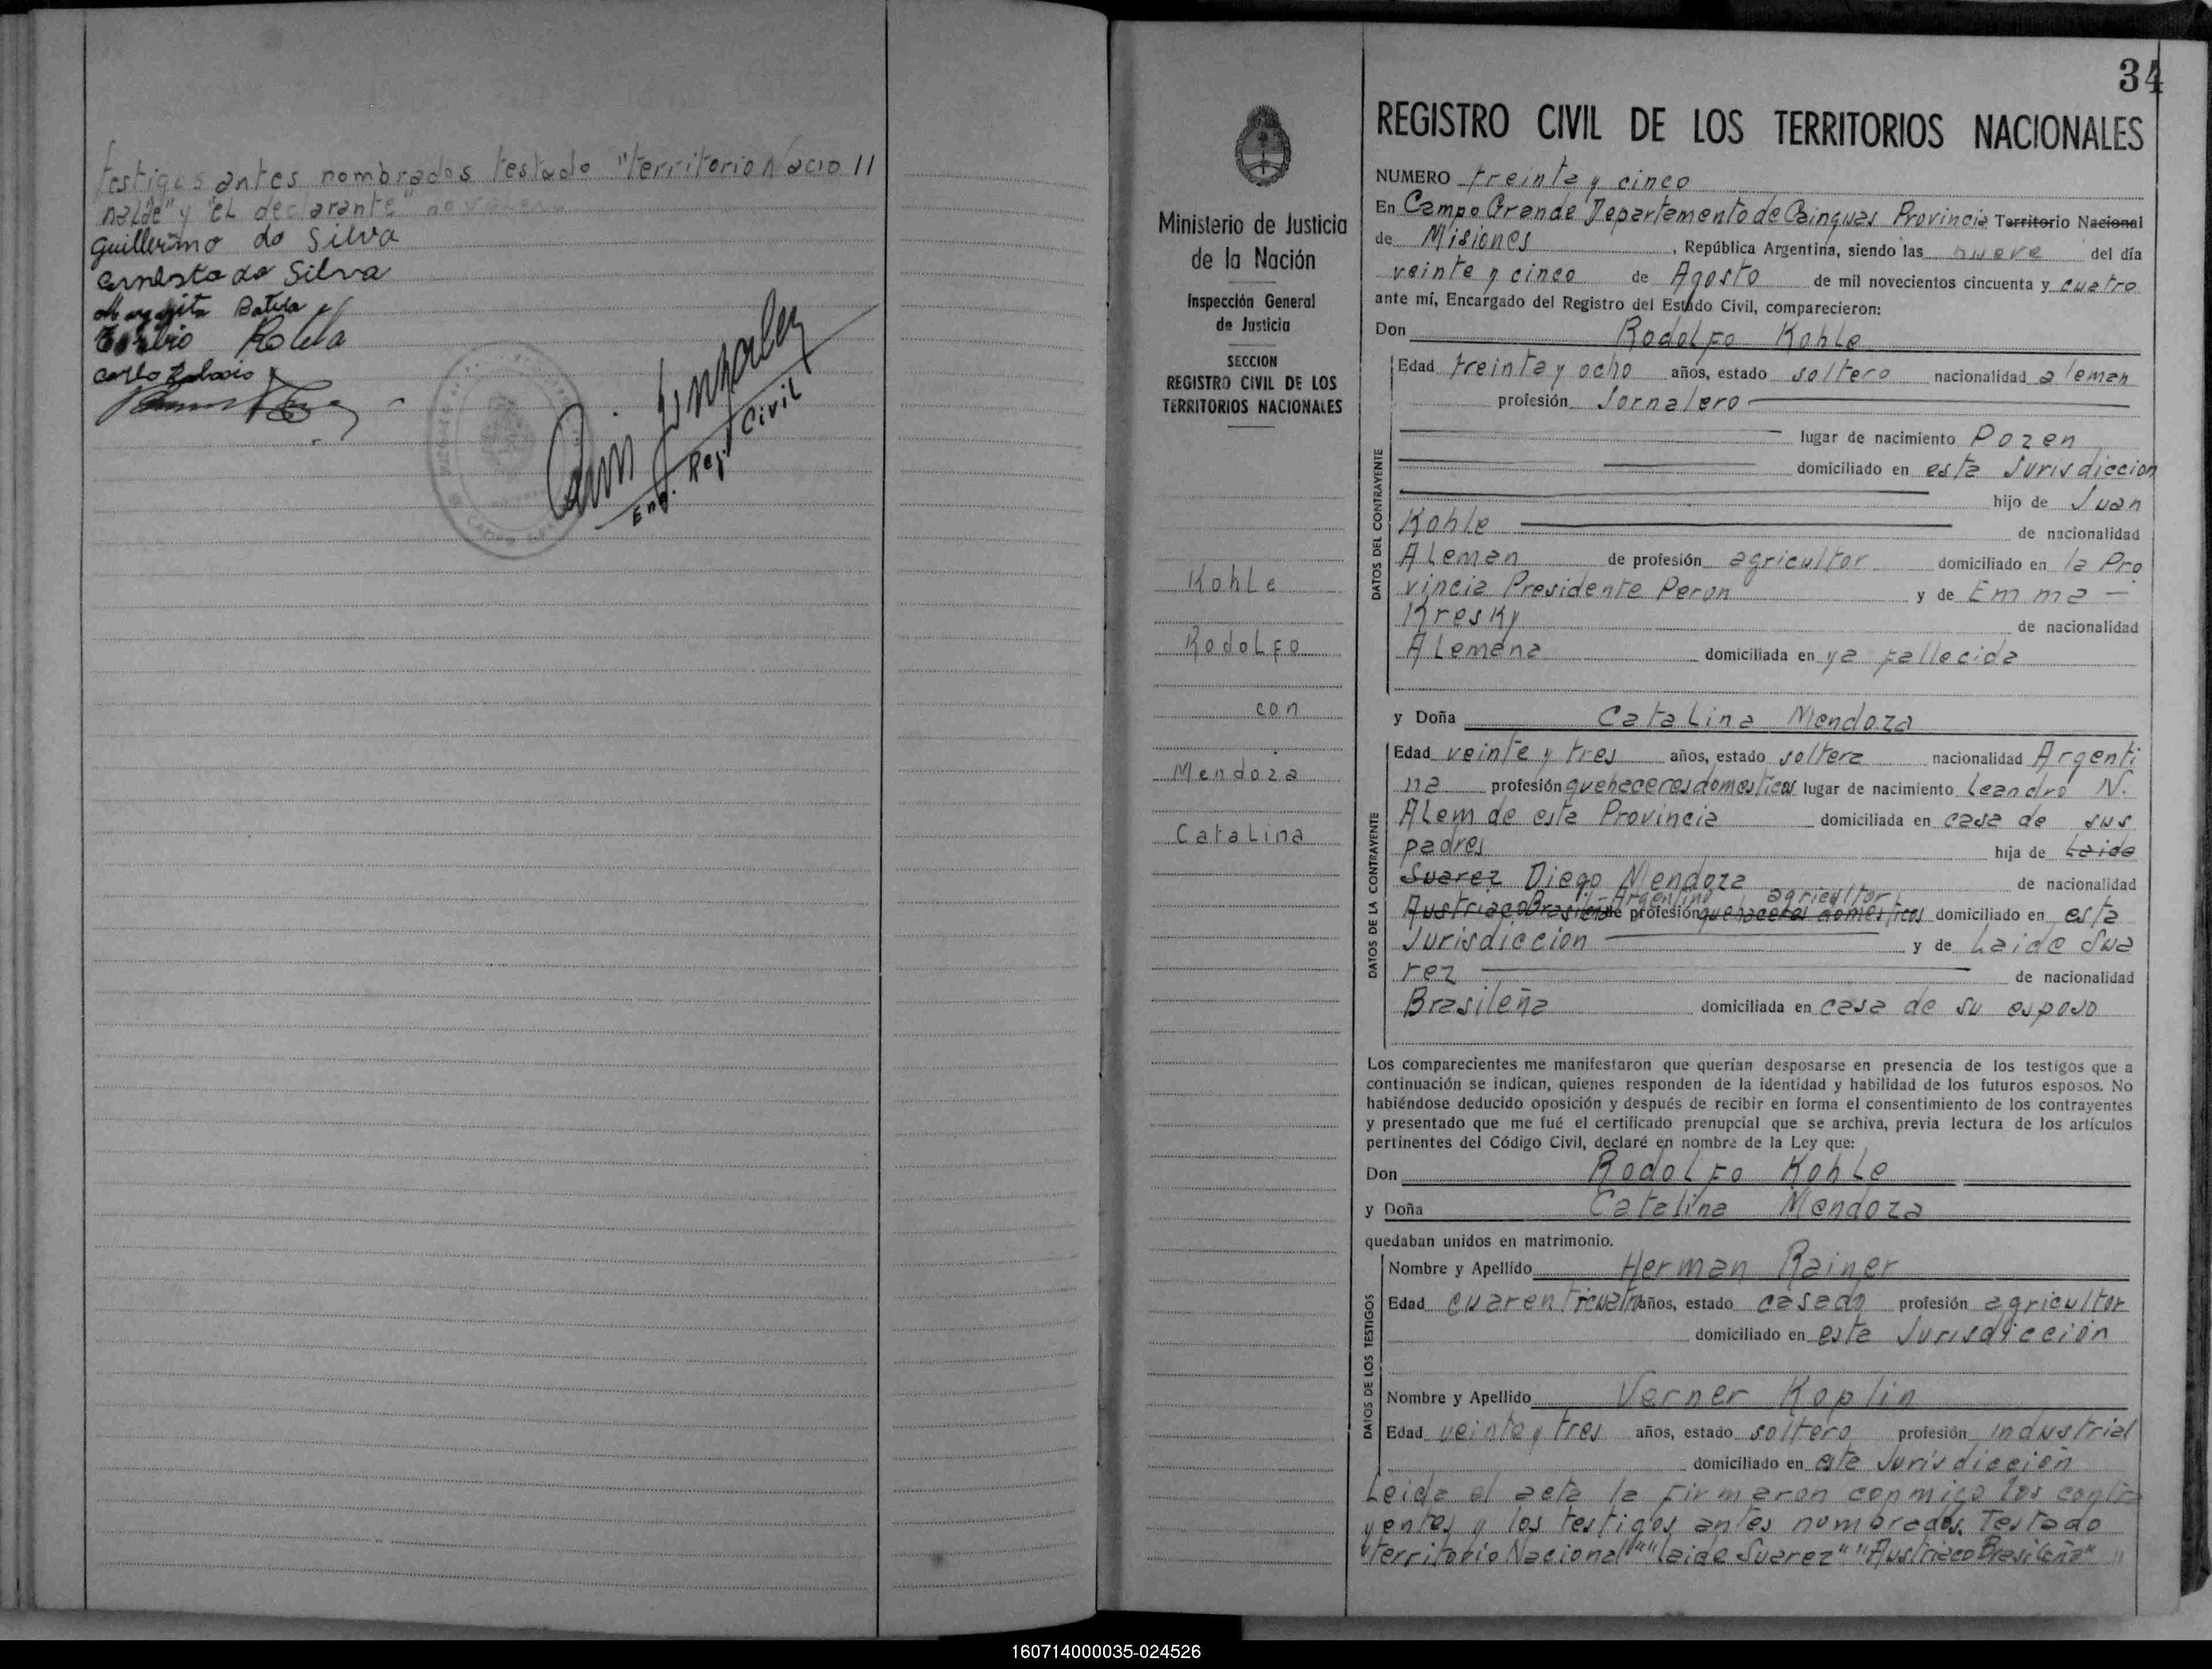 testigos antes nombrados testado "territorio Nacio //
nalde" y "el declarante" no valen
Guillermo do Silva
Ernesto do Silva
Margarita Batista
Carlo
Gonzalez
Enc. Reg. Civil
34
Ministerio de Justicia
de la Nación
Inspección General
de Justicia
SECCION
REGISTRO CIVIL DE LOS
TERRITORIOS NACIONALES
Kohle
Rodolfo
con
Mendoza
Catalina
REGISTRO CIVIL DE LOS TERRITORIOS NACIONALES
NUMERO treinta y cinco
En Campo Grande Departamento de Cainguas Provincia Territorio Nacional
de Misiones, República Argentina, siendo las nueve del día
veinte y cinco de Agosto de mil novecientos cincuenta y cuatro
ante mí, Encargado del Registro del Estado Civil, comparecieron:
Don Rodolfo Kohle
DATOS DEL CONTRAYENTE
Edad treinta y ocho años, estado soltero nacionalidad aleman
profesión Jornalero
lugar de nacimiento Pozen
domiciliado en esta Jurisdiccion
hijo de Juan
Kohle de nacionalidad
Aleman de profesión agricultor domiciliado en la Pro
vincia Presidente Peron y de Emma —
Kresky de nacionalidad
Alemana domiciliada en ya fallecida
y Doña Catalina Mendoza
DATOS DE LA CONTRAYENTE
Edad veinte y tres años, estado soltera nacionalidad Argenti
na profesión quehaceres domesticos lugar de nacimiento Leandro N.
Alem de esta Provincia domiciliada en casa de sus
padres hija de Laide
Suarez Diego Mendoza de nacionalidad
Argentino agricultor
Austriaco Brasileña de profesión quehaceres domesticos domiciliado en esta
Jurisdiccion y de Laide Sua
rez de nacionalidad
Brasileña domiciliada en casa de su esposo
Los comparecientes me manifestaron que querían desposarse en presencia de los testigos que a
continuación se indican, quienes responden de la identidad y habilidad de los futuros esposos. No
habiéndose deducido oposición y después de recibir en forma el consentimiento de los contrayentes
y presentado que me fué el certificado prenupcial que se archiva, previa lectura de los artículos
pertinentes del Código Civil, declaré en nombre de la Ley que:
Don Rodolfo Kohle
y Doña Catalina Mendoza
quedaban unidos en matrimonio.
DATOS DE LOS TESTIGOS
Nombre y Apellido Herman Rainer
Edad cuarenticuatro años, estado casado profesión agricultor
domiciliado en esta Jurisdicción
Nombre y Apellido Verner Koplin
Edad veinte y tres años, estado soltero profesión industrial
domiciliado en esta Jurisdicción
Leida el acta la firmaron conmigo los contra
yentes y los testigos antes nombrados. Testado
"Territorio Nacional" "Laide Suarez" "Austriaco Brasileña" "
160714000035-024526